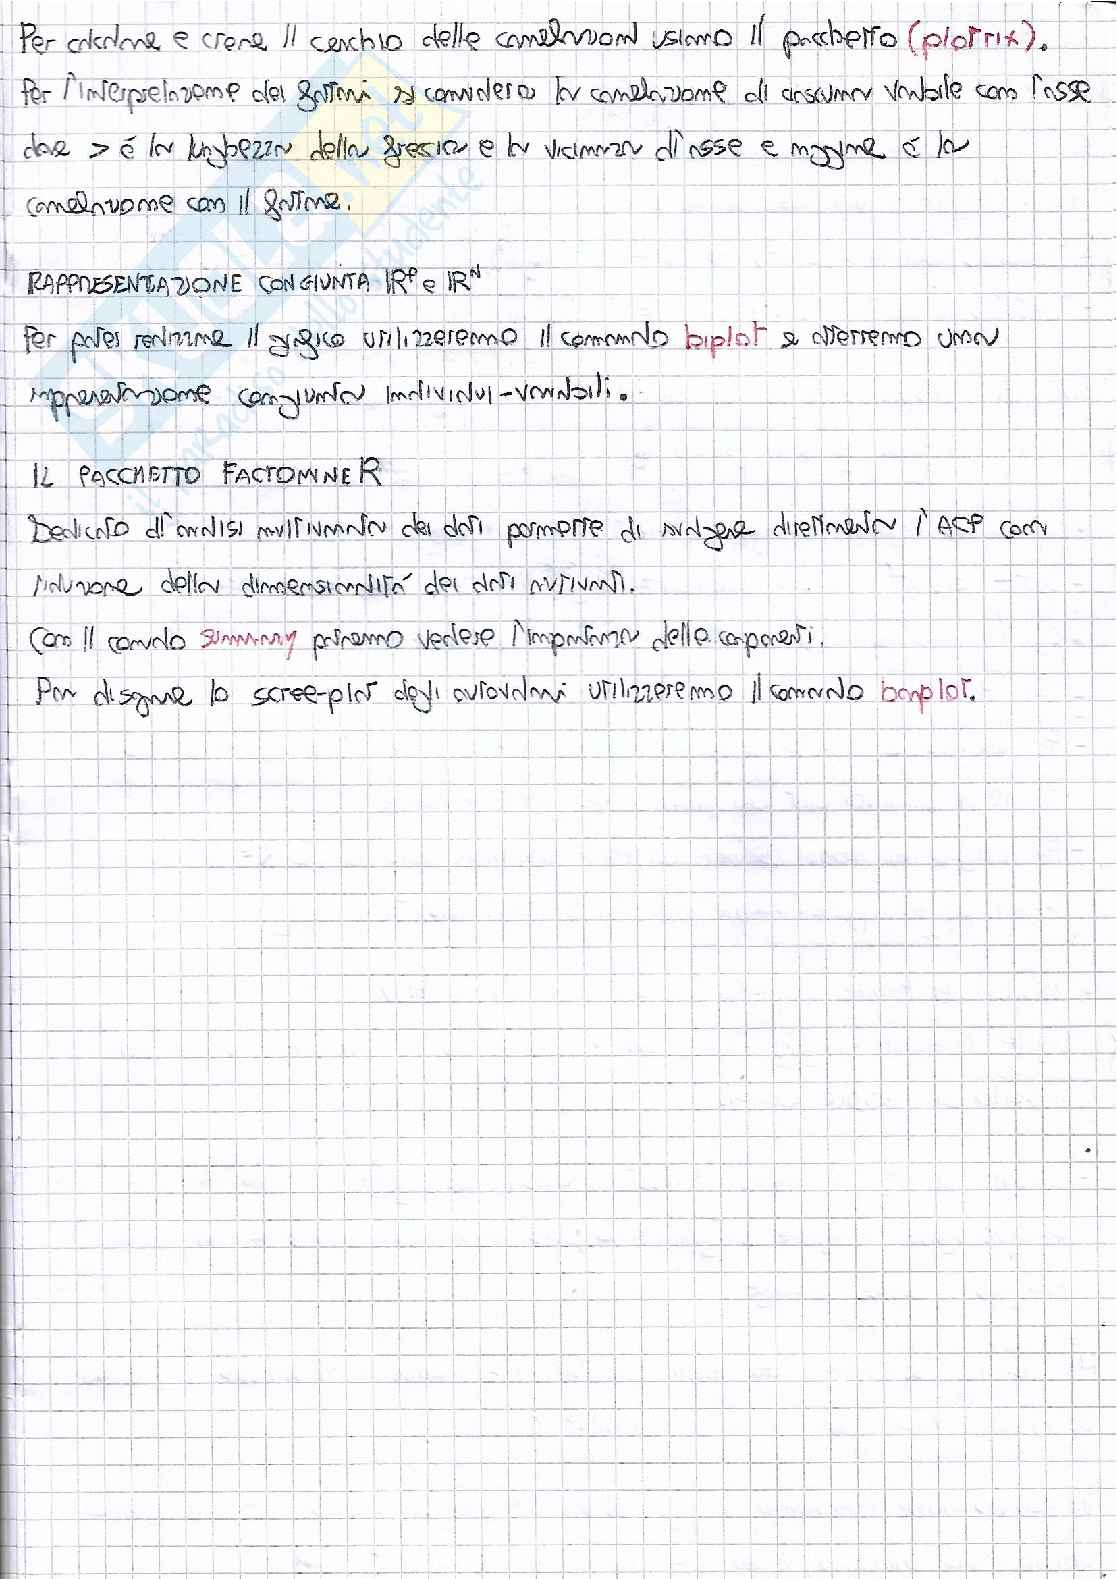 Per calcolare e creare il cerchio delle correlazioni usiamo il pacchetto (plotrix).
Per l'interpretazione dei fattori si considera la correlazione di ciascuna variabile con l'asse
dove > é la lunghezza della freccia e la vicinanza all'asse e maggiore é la
correlazione con il fattore.
RAPPRESENTAZIONE CONGIUNTA IRᴾ e IRᴺ
Per poter realizzare il grafico utilizzeremo il comando biplot e otterremo una
rappresentazione congiunta individui-variabili.
IL PACCHETTO FACTOMINER
Dedicato all'analisi multivariata dei dati permette di svolgere direttamente l'ACP con
riduzione della dimensionalitá dei dati
Con il comando summary potremo vedere l'importanza delle componenti.
Per disegnare lo scree-plot degli autovalori utilizzeremo il comando barplot.
SKUOLA.net
il paradiso dello studente